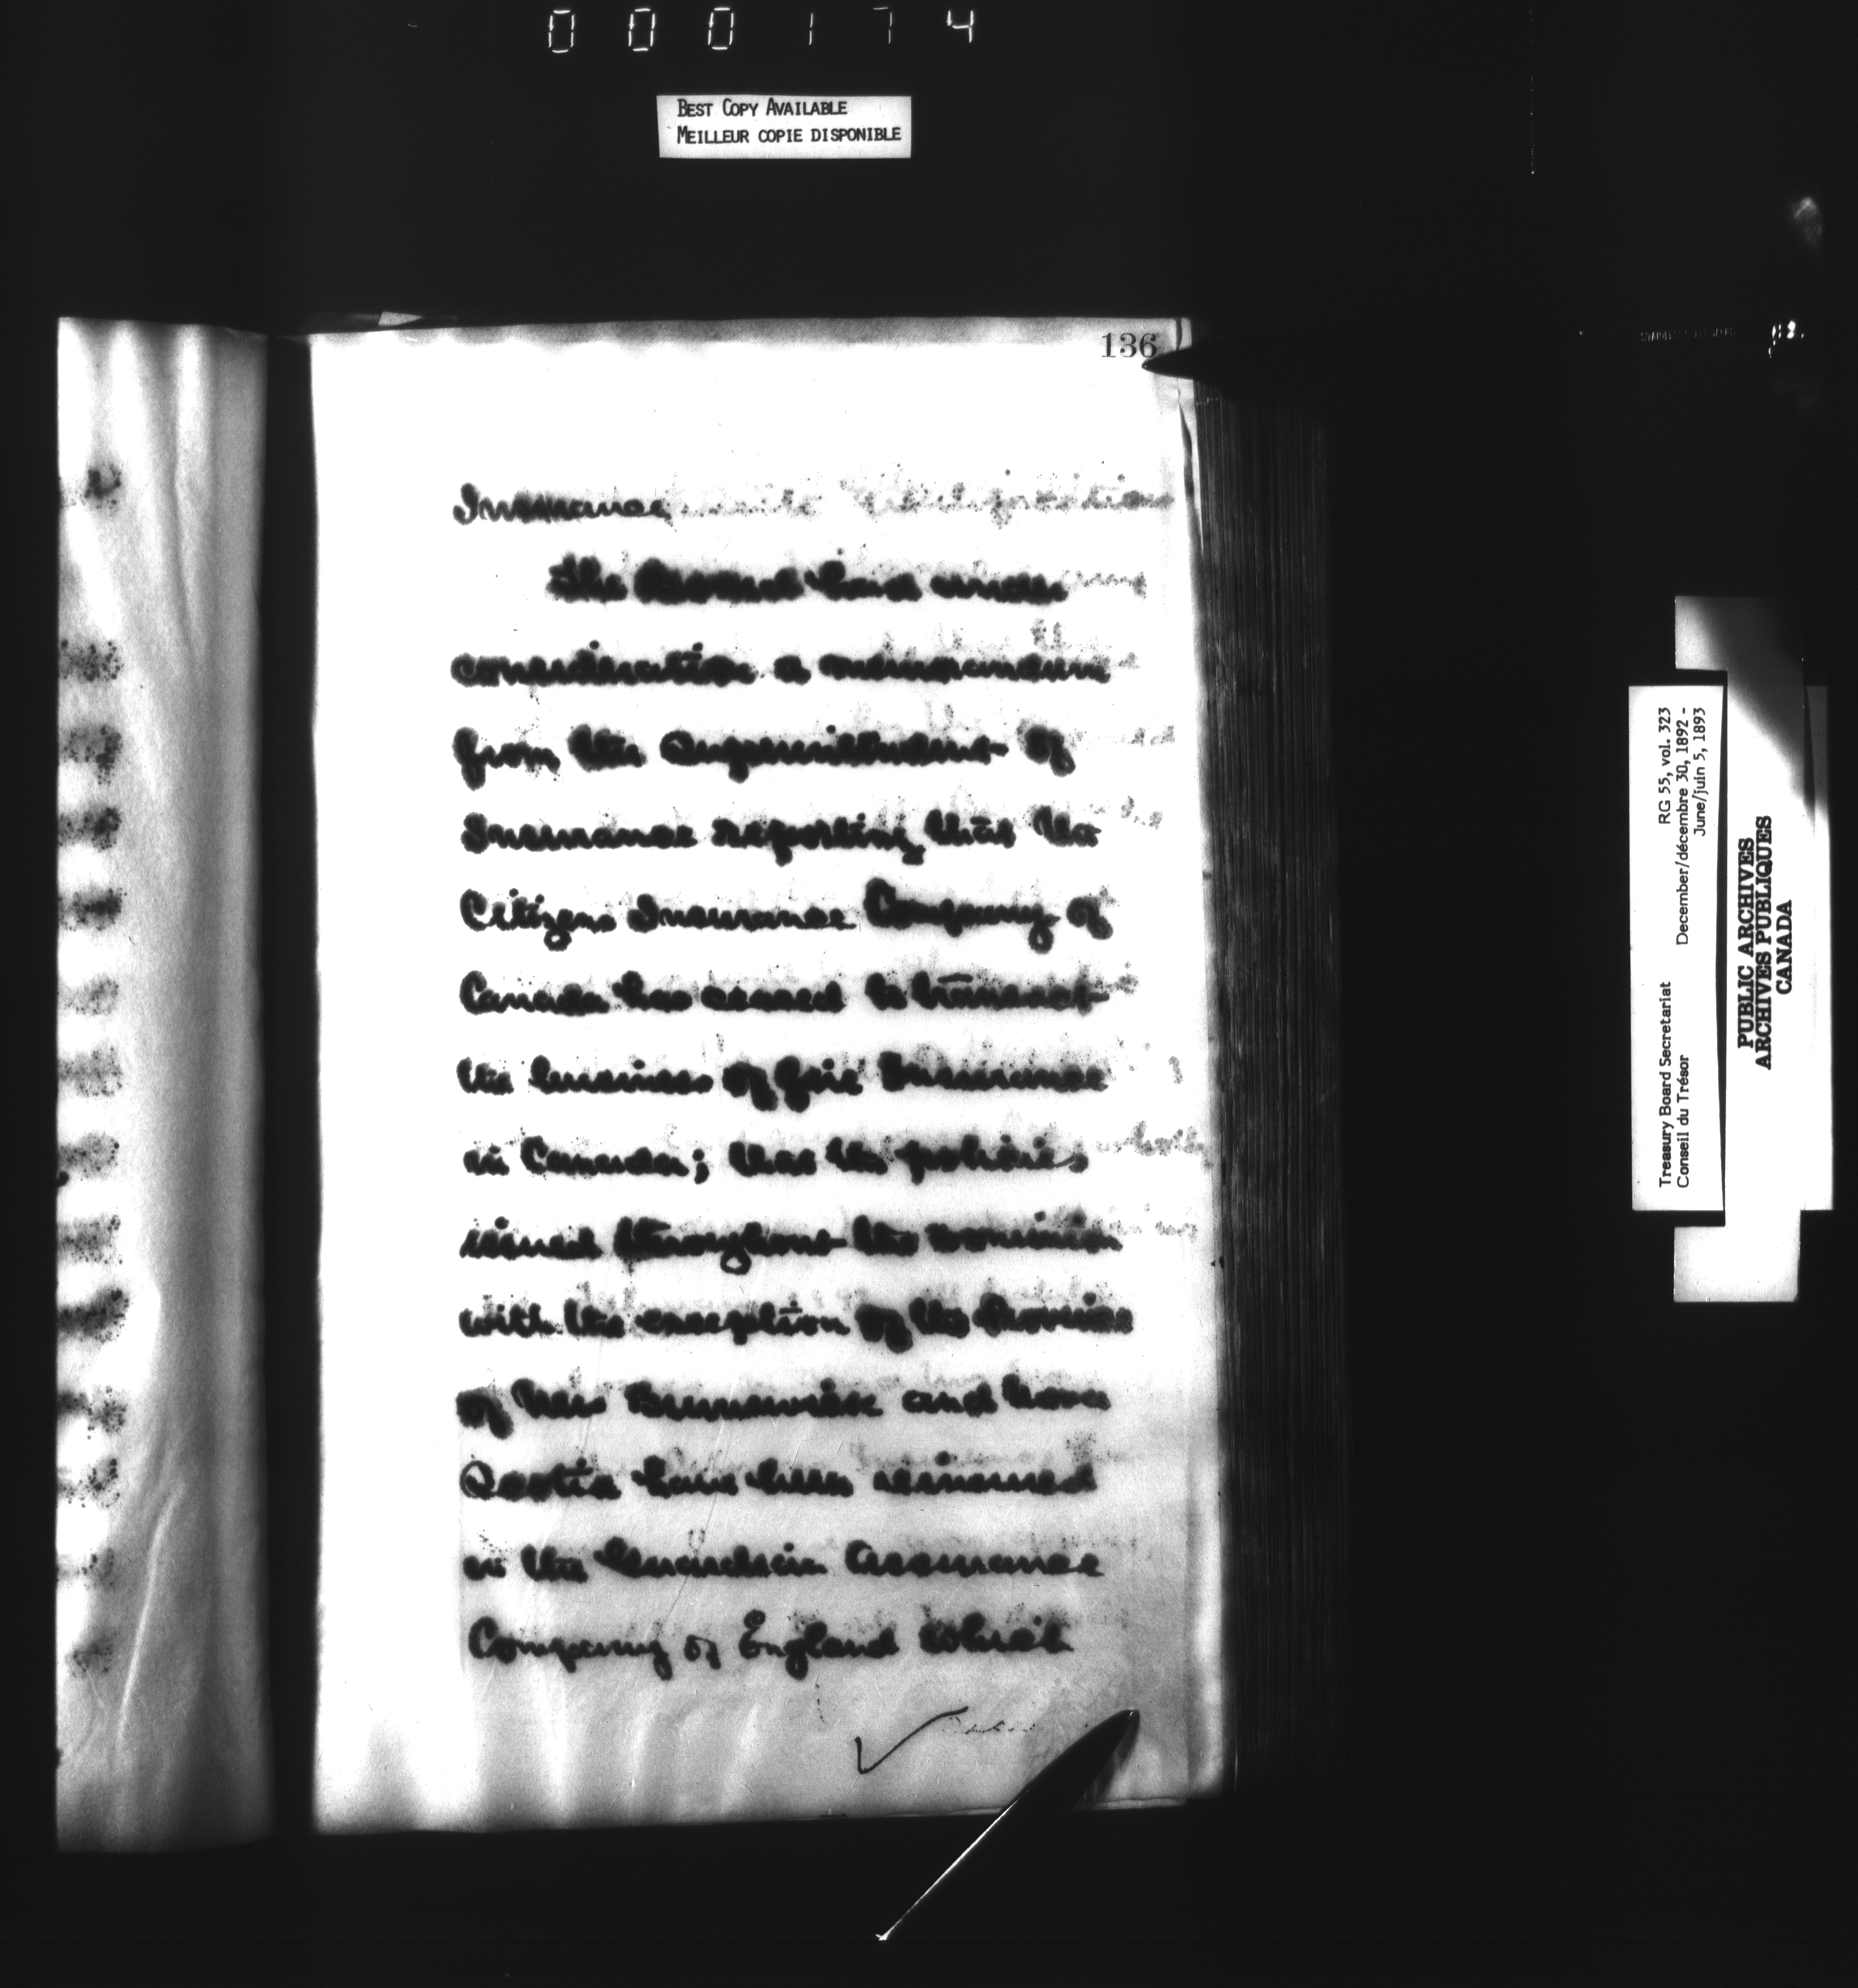 000174
BEST COPY AVAILABLE
MEILLEUR COPIE DISPONIBLE
136
Insurance
The Board had under
consideration a memorandum
from the Superintendent of
Insurance reporting that the
Citizens Insurance Company of
Canada has ceased to transact
the business of fire Insurance
in Canada; that the policies
issued throughout the Dominion
with the exception of the Province
of New Brunswick and Nova
Scotia have been reinsured
in the Guardian Assurance
Company of England which
Treasury Board Secretariat RG 55, vol. 323
Conseil du Trésor December/décembre 30, 1892 -
June/juin 5, 1893
PUBLIC ARCHIVES
ARCHIVES PUBLIQUES
CANADA